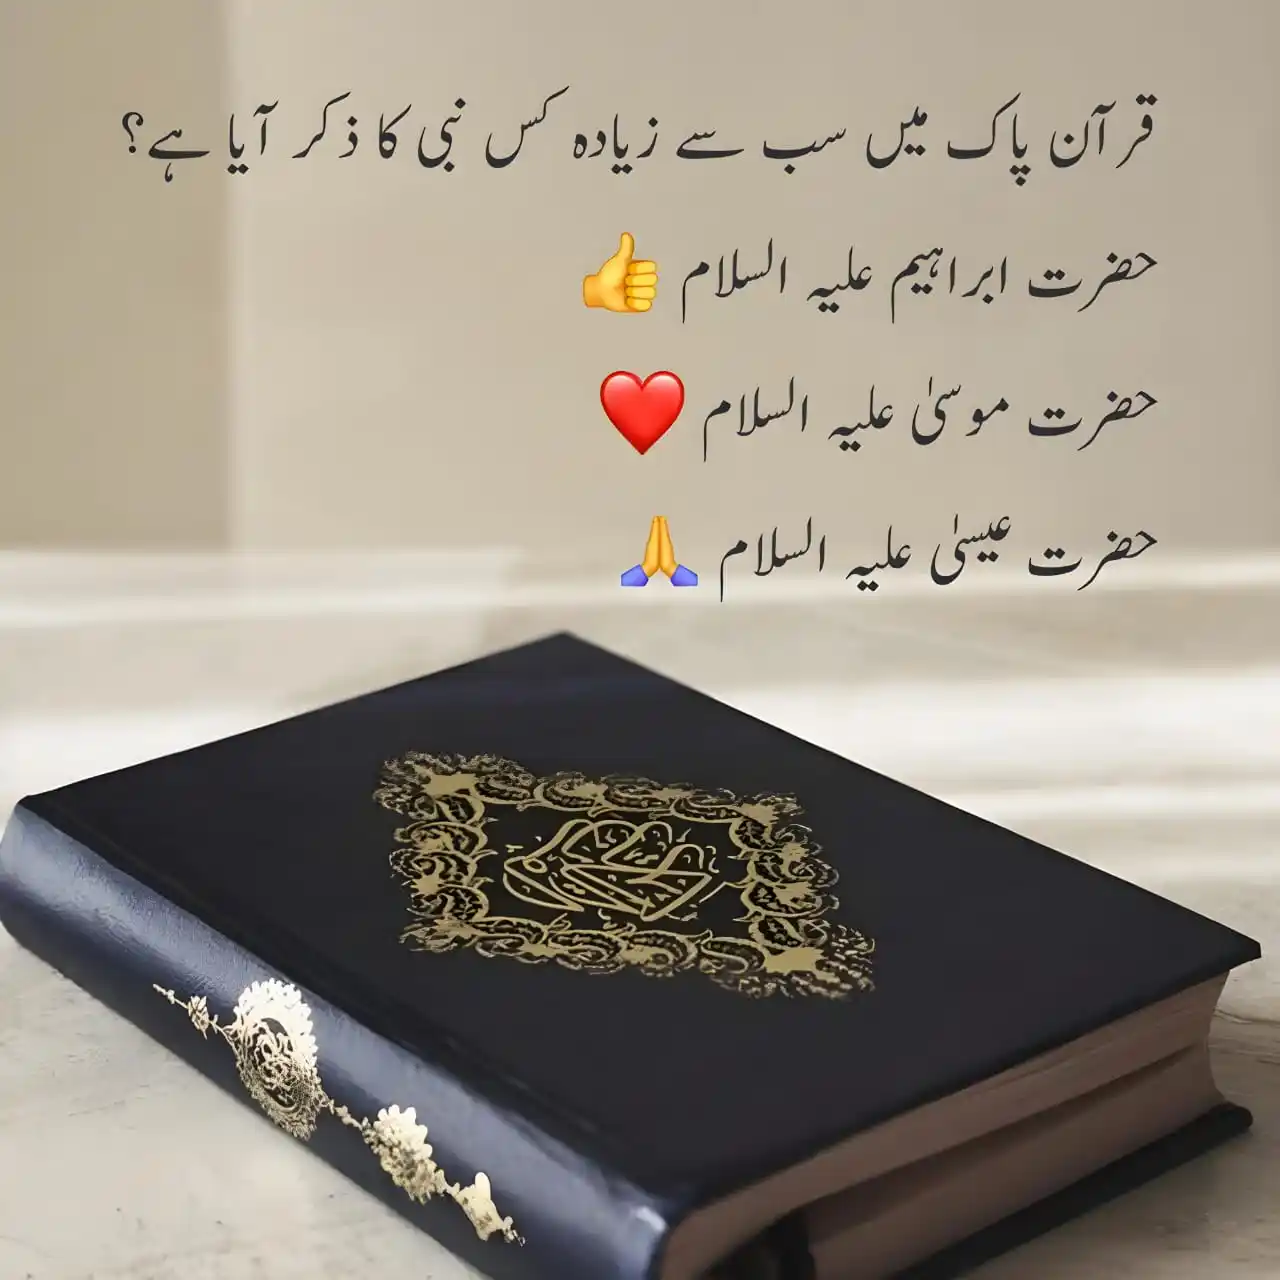 قرآن پاک میں سب سے زیادہ کس نبی کا ذکر آیا ہے؟
حضرت ابراہیم علیہ السلام 👍
حضرت موسیٰ علیہ السلام ❤️
حضرت عیسیٰ علیہ السلام 🙏